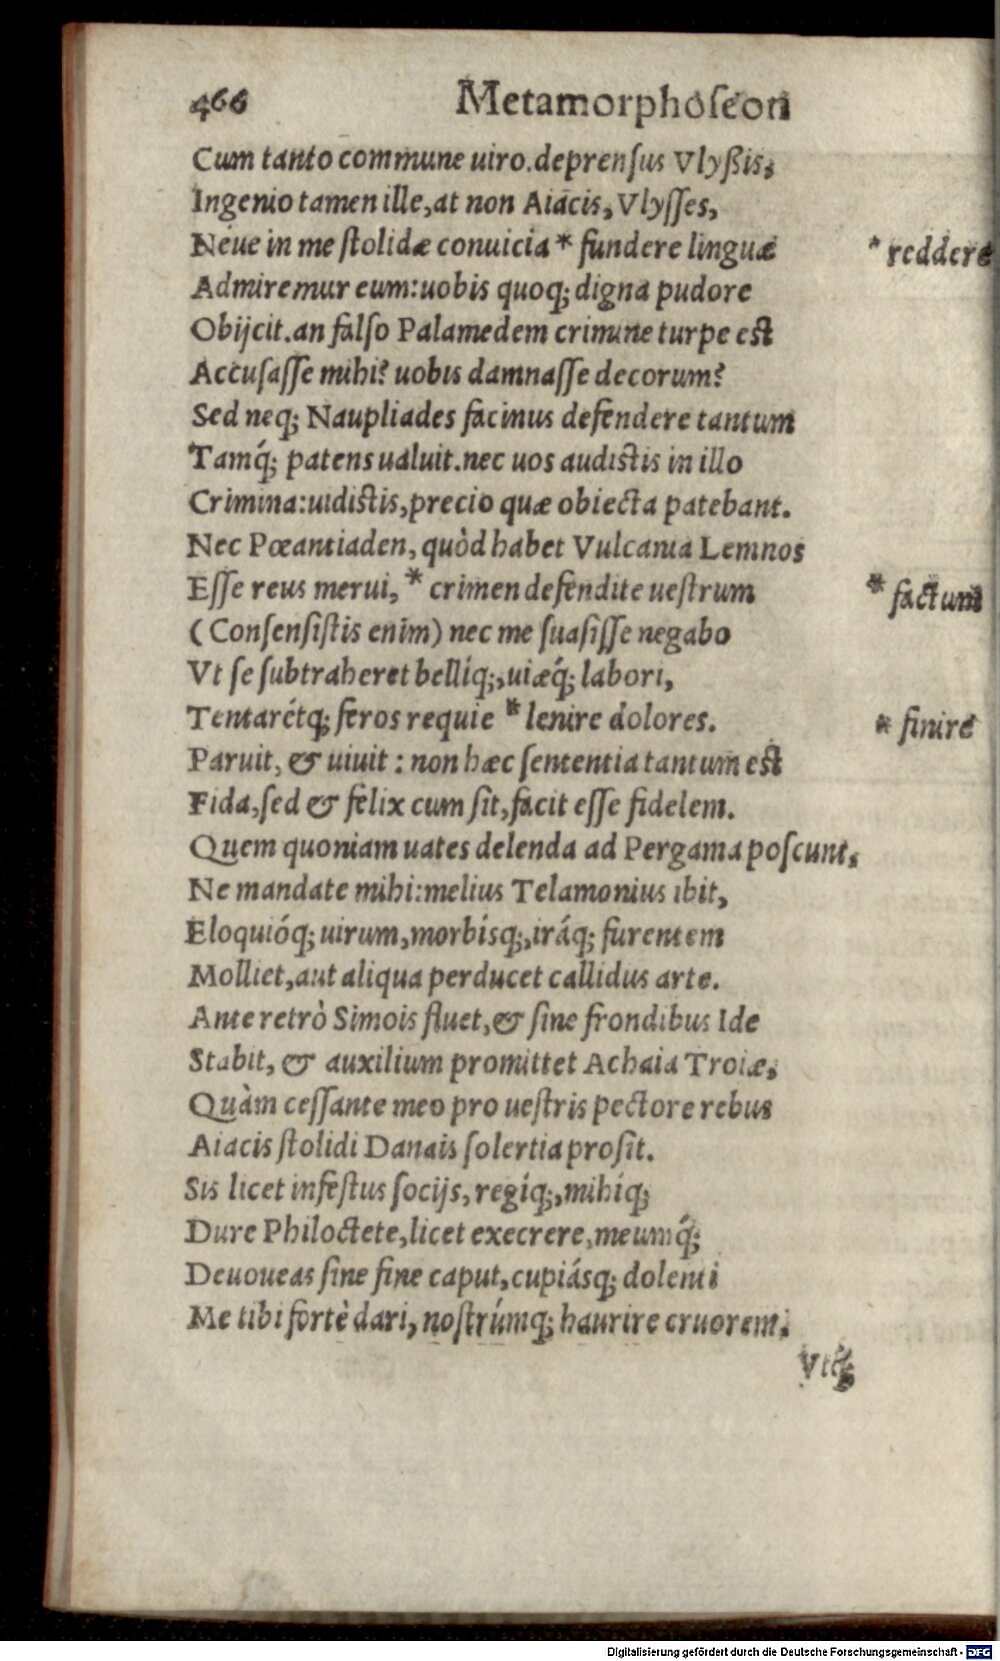 466 Metamorphoſeon
Cum tanto commune uiro.deprenſus Vlyßis,
Ingenio tamen ille,at non Aiacis, Vlyſſes,
Néue in me ſtolidæ conuicia * fundere linguæ * reddere
Admiremur eum:uobis quoq; digna pudore
Obijcit.an falſo Palamedem crimine turpe est
Accuſaſſe mihi? uobis damnaſſe decorum?
Sed neq; Naupliades facinus defendere tantum
Tamq́; patens ualuit.nec uos audistis in illo
Crimina:uidistis,precio quæ obiecta patebant.
Nec Pœantiaden, quòd habet Vulcania Lemnos
Eſſe reus merui, * crimen defendite ueſtrum * factum
(Conſenſiſtis enim) nec me ſuaſiſſe negabo
Vt ſe ſubtraheret bellíq;,uiæq́; labori,
Tentarétq; feros requie * lenire dolores. * finire
Paruit, & uiuit : non hæc ſententia tantum est
Fida,ſed & felix cum ſit,facit eſſe fidelem.
Quem quoniam uates delenda ad Pergama poſcunt,
Ne mandate mihi:melius Telamonius ibit,
Eloquióq; uirum,morbísq;,iráq; furentem
Molliet,aut aliqua perducet callidus arte.
Ante retrò Simois fluet,& ſine frondibus Ide
Stabit, & auxilium promittet Achaia Troiæ,
Quàm ceſſante meo pro ueſtris pectore rebus
Aiacis ſtolidi Danais ſolertia proſit.
Sis licet infeſtus ſocijs, regíq;,mihíq;
Dure Philoctete,licet execrere,meumq́;
Deuoueas ſine fine caput,cupiásq; dolenti
Me tibi fortè dari, noſtrúmq; haurire cruorem,
Vtq;
Digitalisierung gefördert durch die Deutsche Forschungsgemeinschaft - DFG